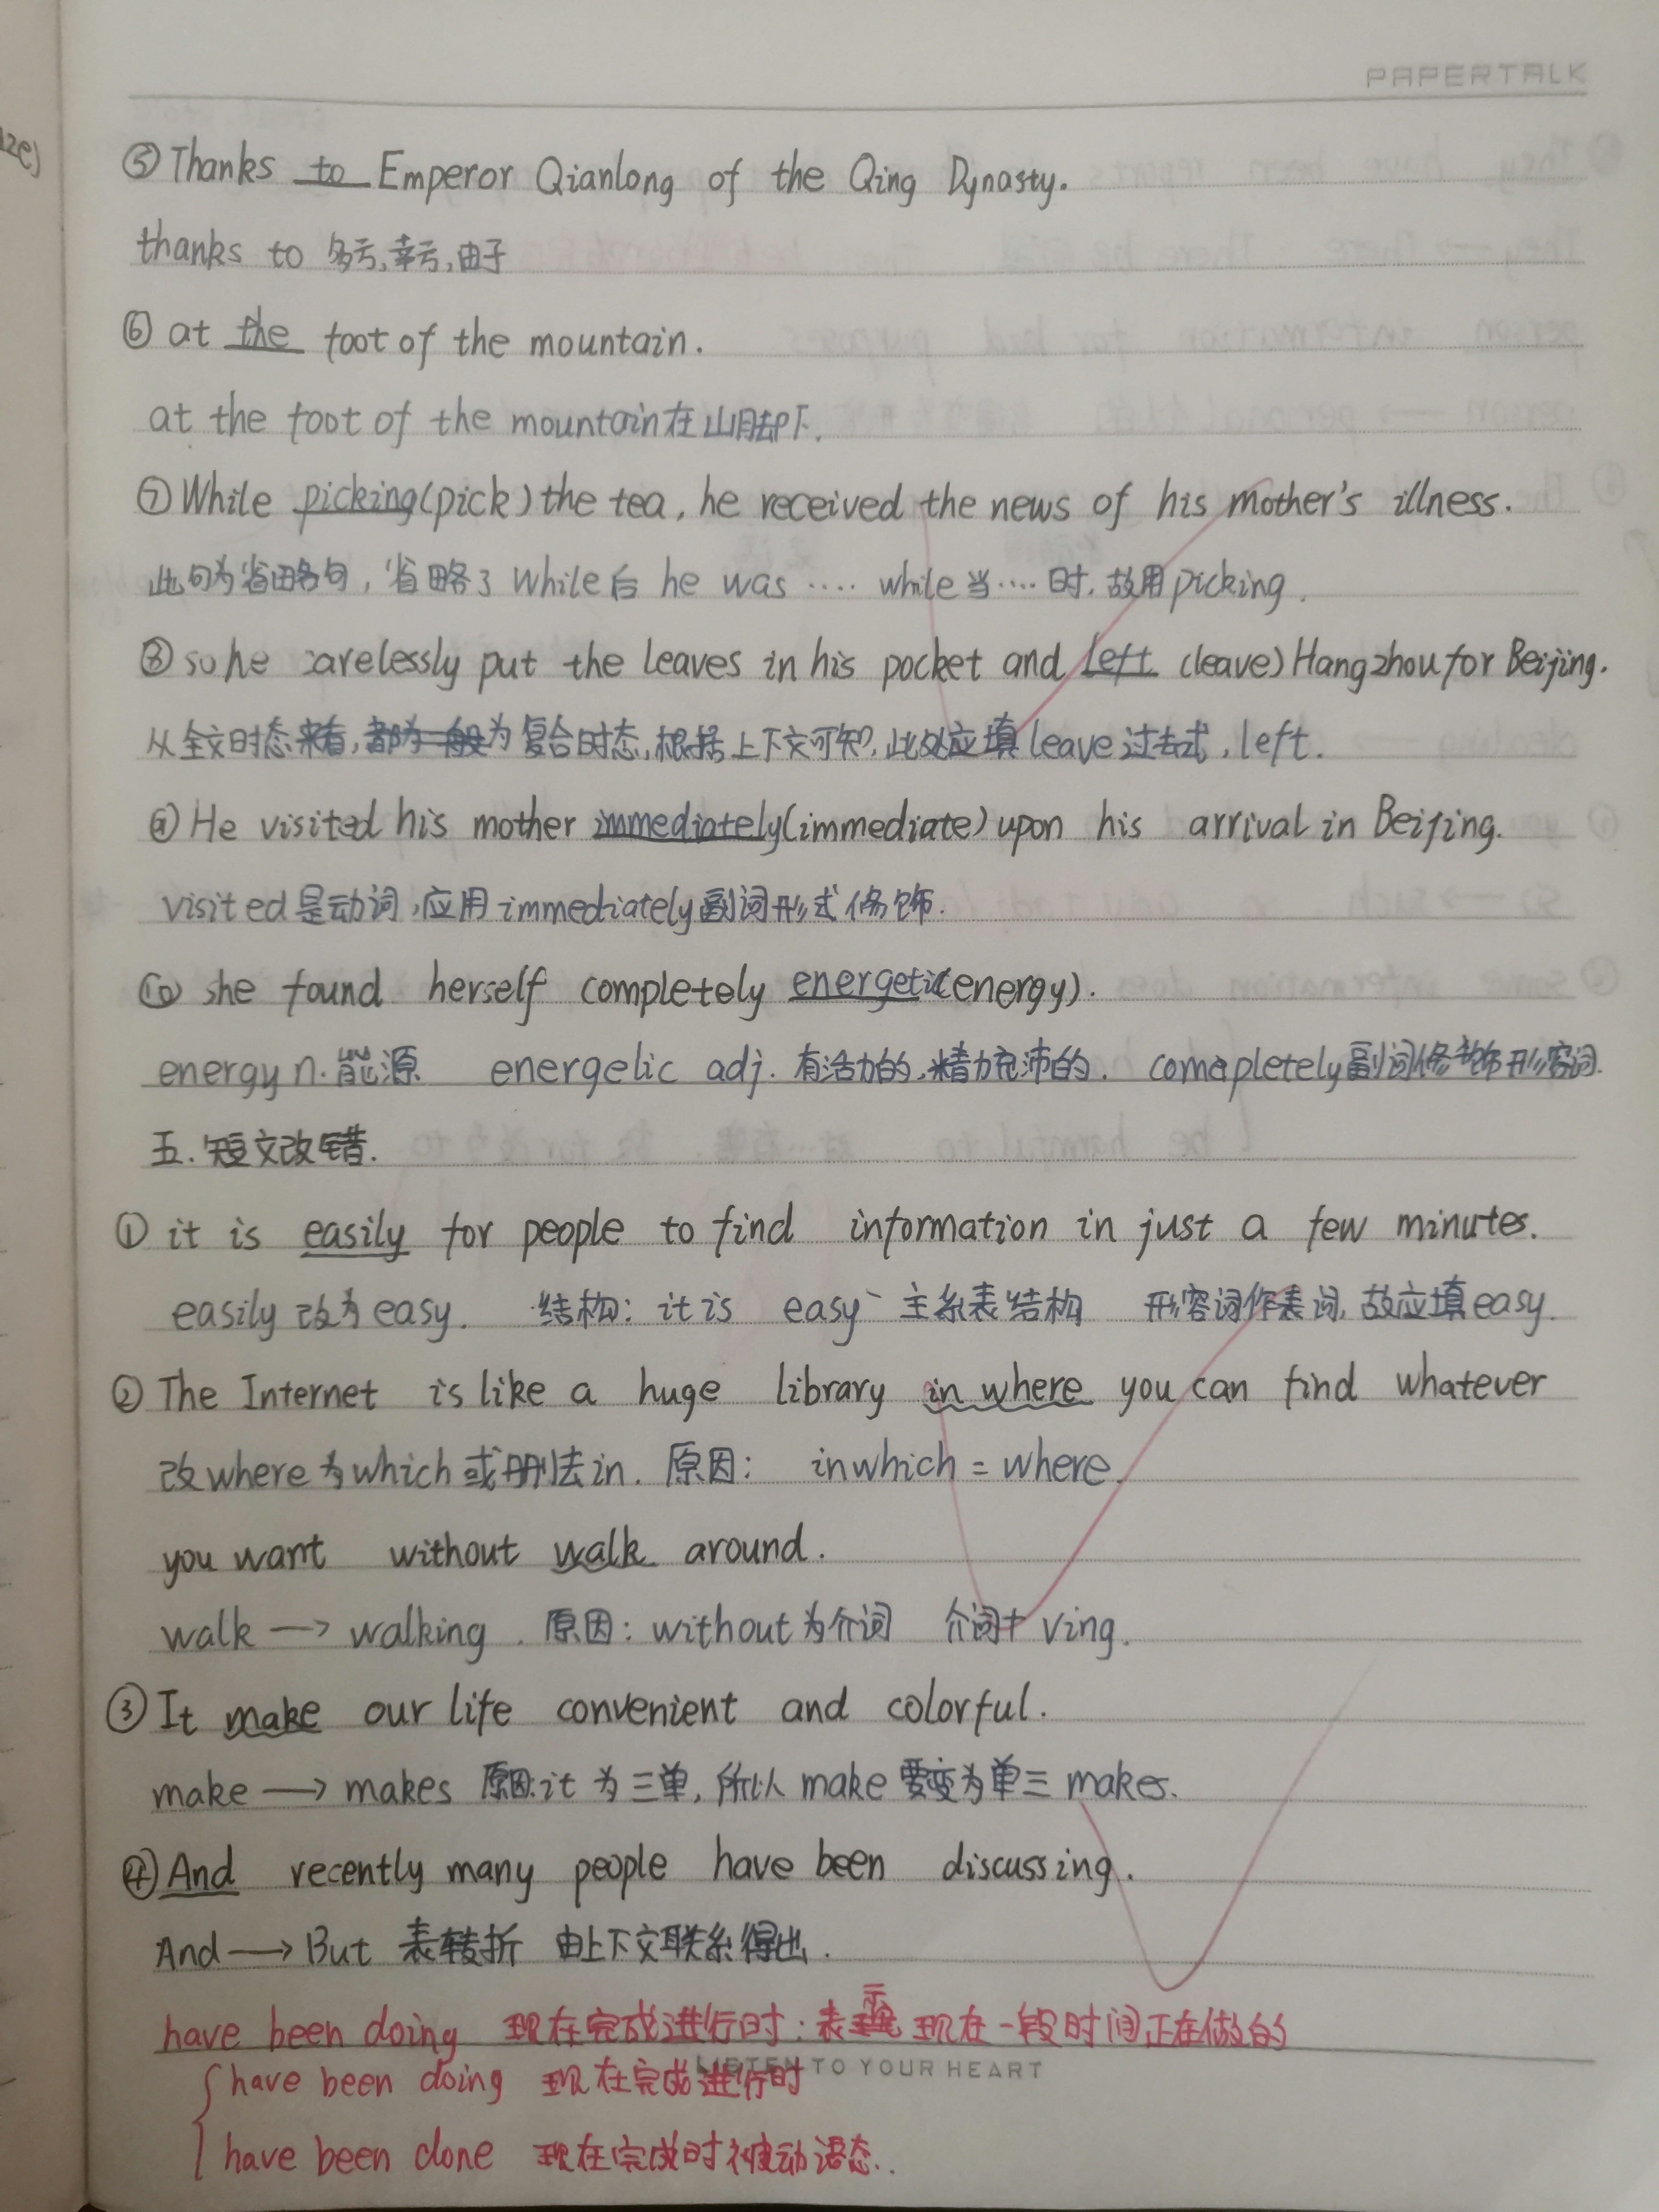 PAPERTALK
⑤Thanks to Emperor Qianlong of the Qing Dynasty.
thanks to 多亏,幸亏,由于
⑥ at the foot of the mountain.
at the foot of the mountain在山脚下.
⑦While picking(pick)the tea, he received the news of his mother's illness.
此句为省略句,省略了While后 he was .... while当....时.故用picking.
⑧so he carelessly put the leaves in his pocket and left (leave)Hangzhou for Beijing.
从全文时态来看,都为一般为复合时态,根据上下文可知,此处应填leave过去式,left.
⑨He visited his mother immediately(immediate)upon his arrival in Beijing.
visited是动词,应用immediately副词形式修饰.
⑩ she found herself completely energetic(energy).
energy n.能源 energelic adj.有活力的,精力充沛的. comapletely副词修饰形容词.
五.短文改错.
① it is easily for people to find information in just a few minutes.
easily改为easy. 结构: it is easy 主系表结构 形容词作表词,故应填easy.
② The Internet is like a huge library in where you can find whatever
改where为which或删去in. 原因: in which = where.
you want without walk around.
walk → walking. 原因: without为介词 介词+ Ving.
③It make our life convenient and colorful.
make → makes 原因:it为三单,所以make要变为单三makes.
④And recently many people have been discussing.
And → But 表转折 由上下文联系得出.
have been doing 现在完成进行时:表示现在一段时间正在做的
LISTEN TO YOUR HEART
have been doing 现在完成进行时
have been done 现在完成时被动语态.